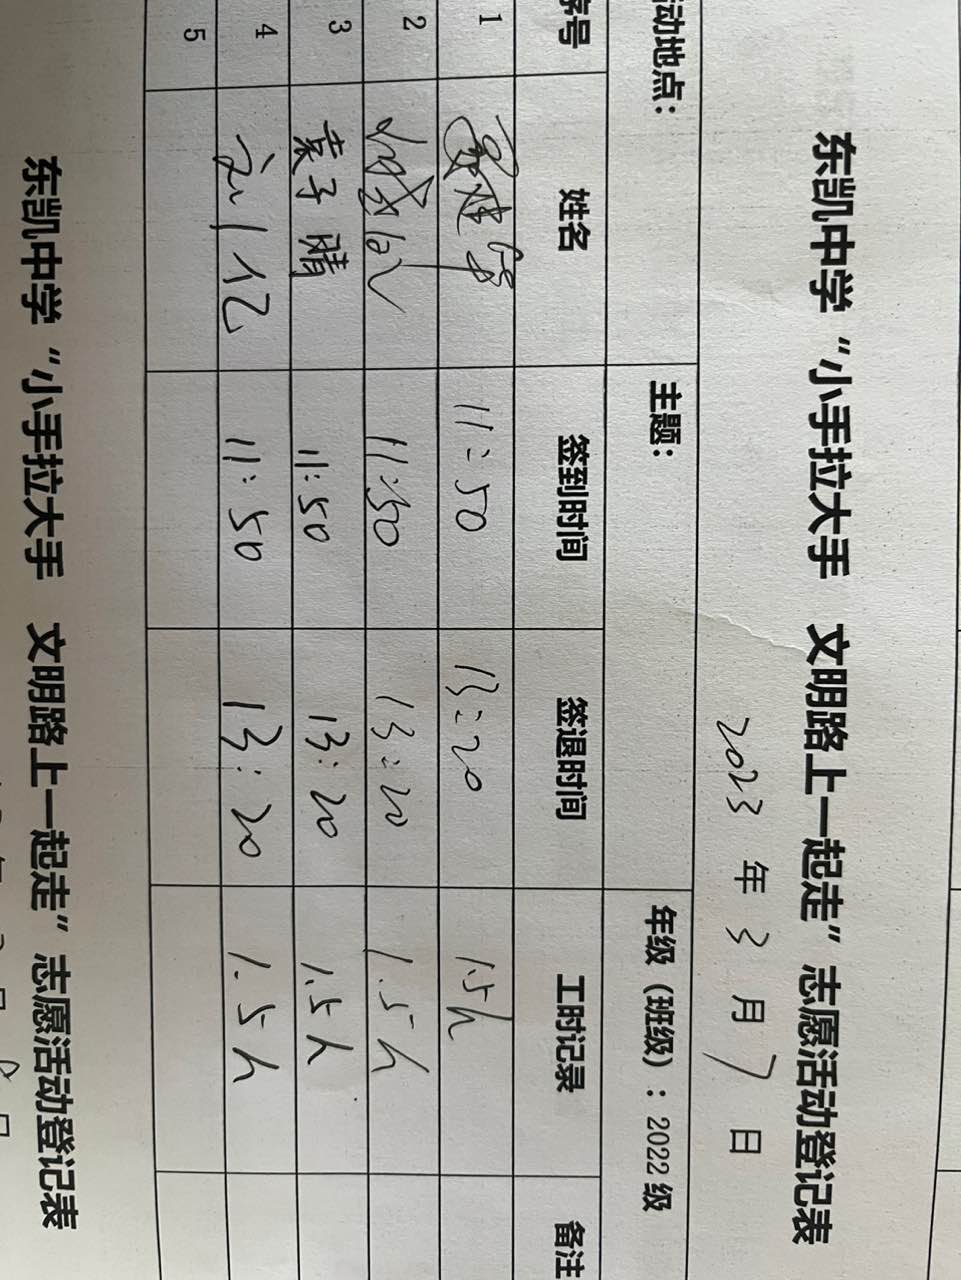 东凯中学“小手拉大手 文明路上一起走”志愿活动登记表
2023 年 3 月 7 日
动地点： 主题： 年级（班级）：2022 级
序号 姓名 签到时间 签退时间 工时记录 备注
1 11:50 13:20 1.5h
2 11:50 13:20 1.5h
3 袁子晴 11:50 13:20 1.5h
4 刘亿 11:50 13:20 1.5h
5
东凯中学“小手拉大手 文明路上一起走”志愿活动登记表